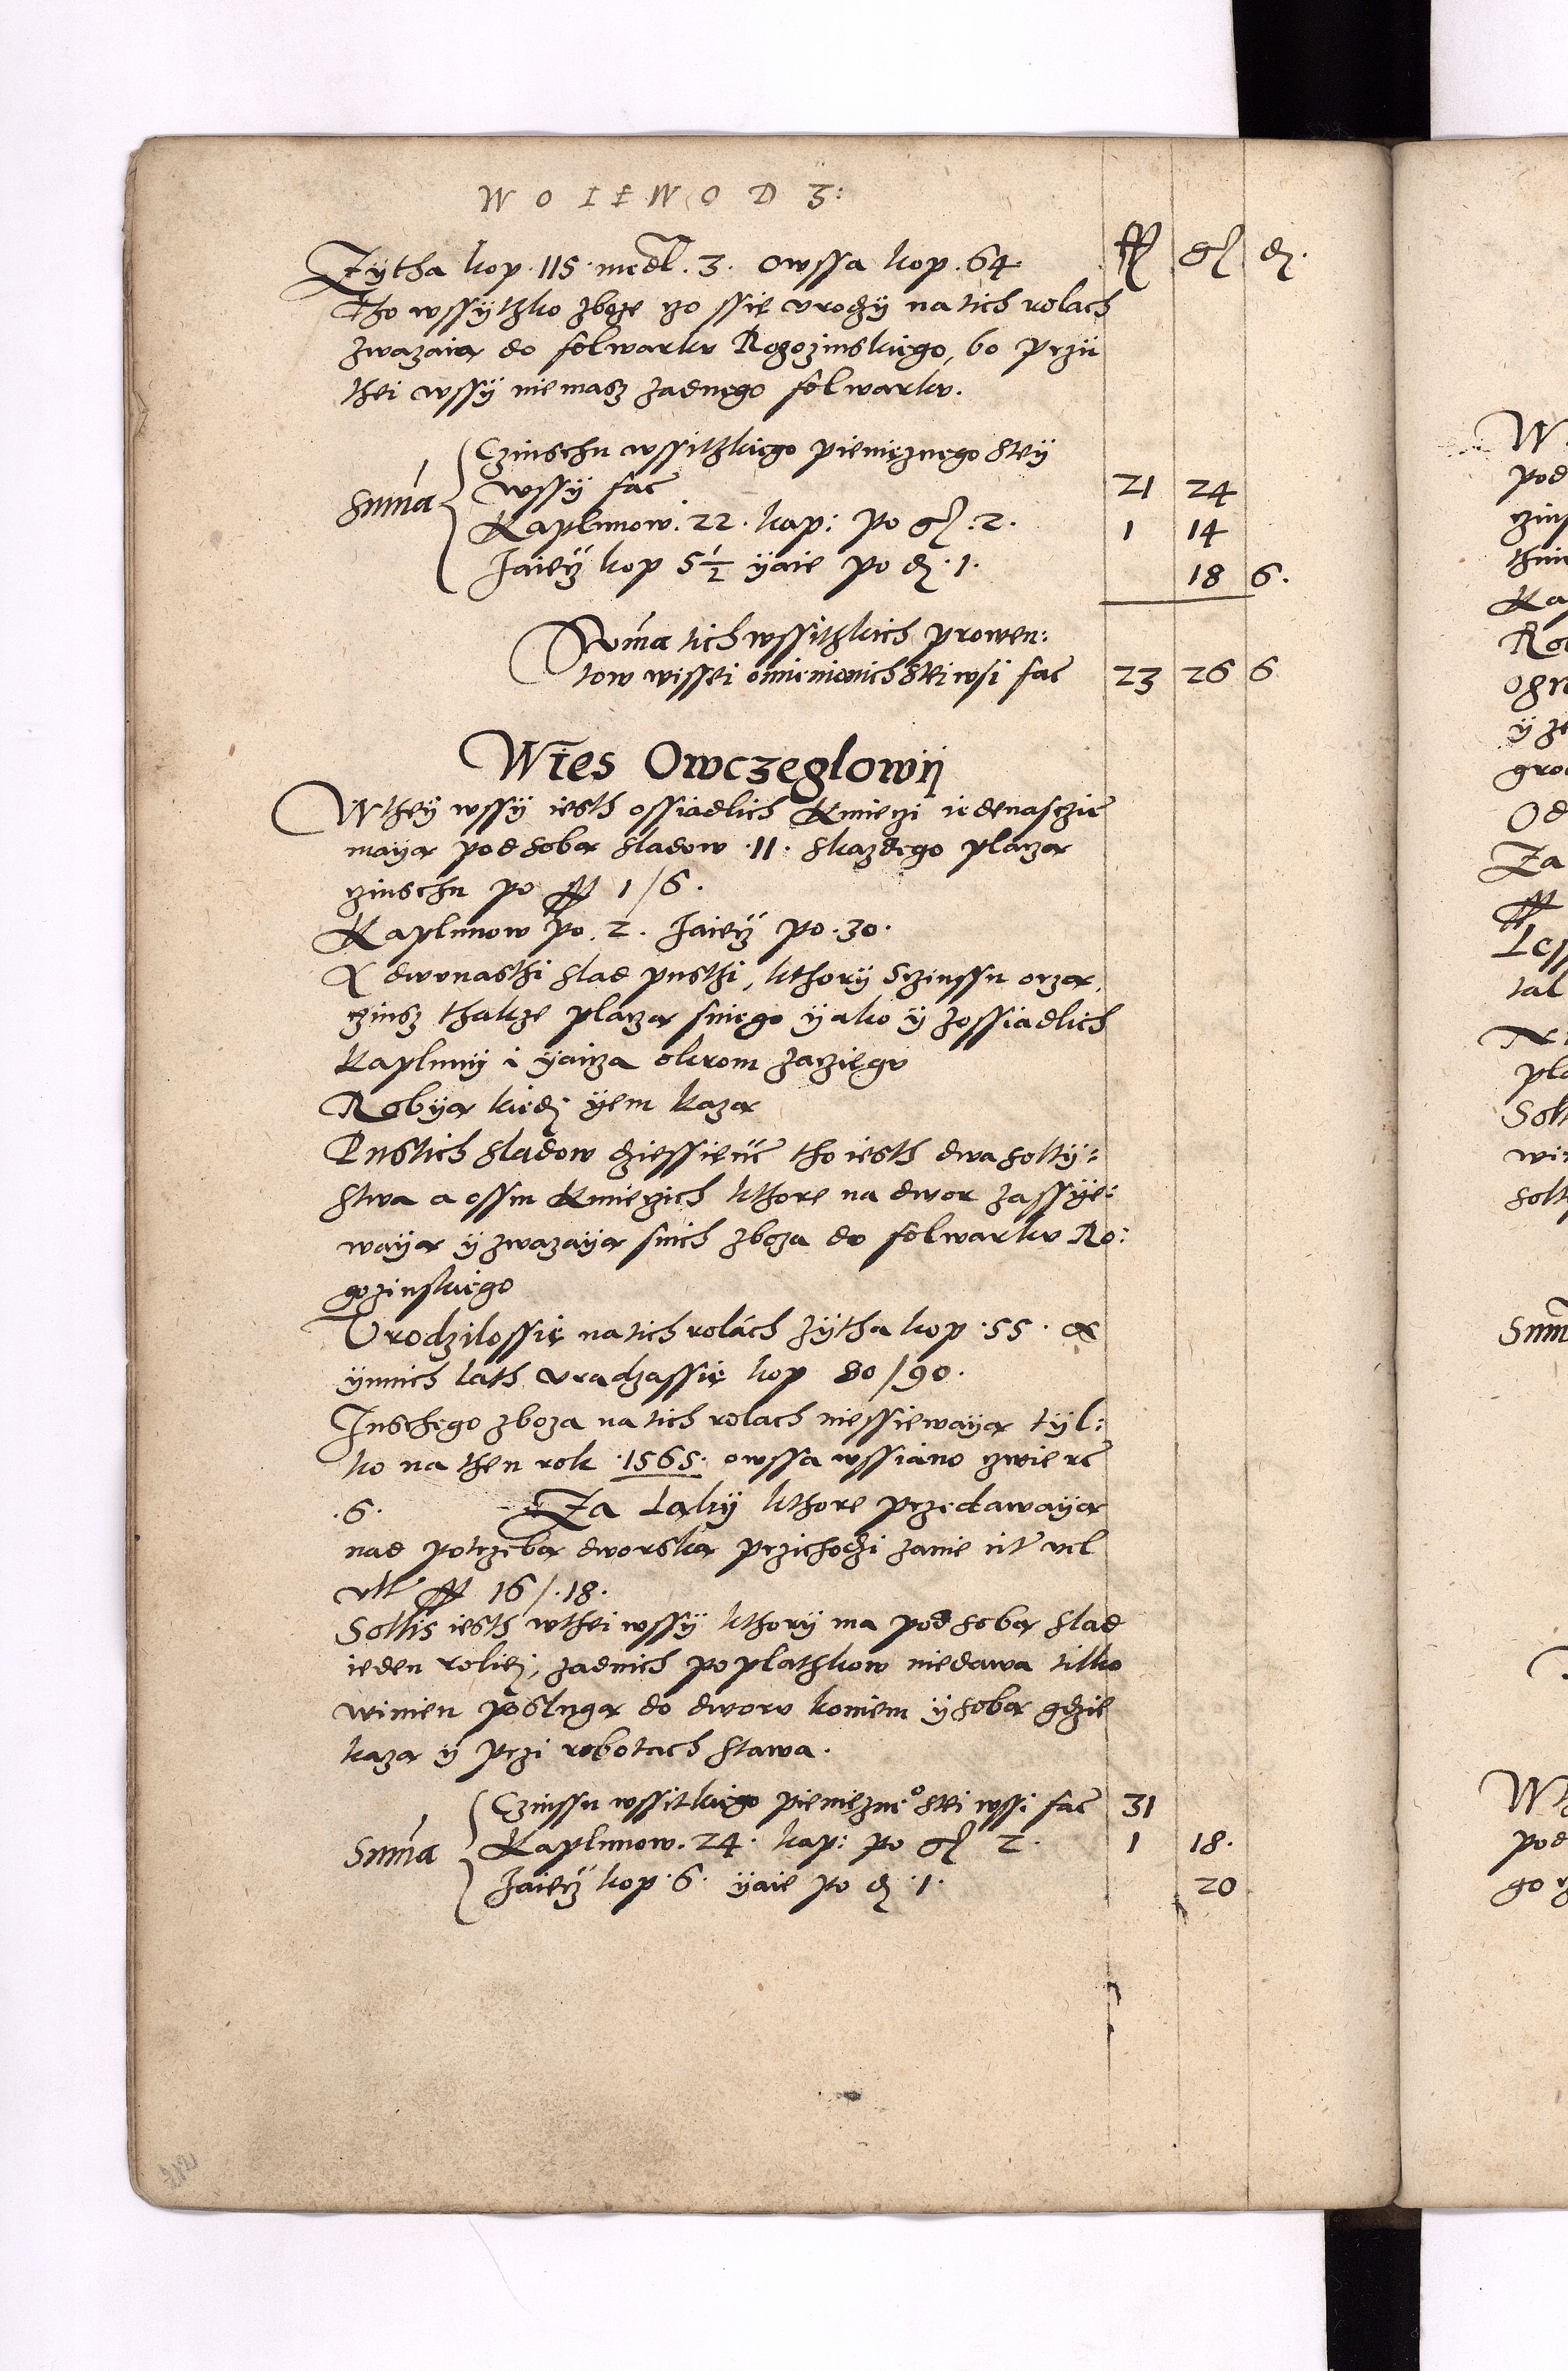 WOIEWODZ:
Zytha kop. 115. medl. 3. Owssa kop. 64. ff gł d.
Tho wssÿtzko zboże czo ssię vrodzÿ na tich rolach
zwazaią do folwarku Rogozinskiego, bo przii
thei wssÿ nie masz zadnego folwarku.
Czinschu wssitzkiego pieniężnego stey
wssÿ fac 21 24
Summa
Kaplunow. 22. kap: po gł. 2. 1 14
Jaiecz kop 5 1/2 ÿaie po d. 1. 18 6.
Summa tich wssitzkich prowen:
tow wissei omienionich stei wsi fac 23 26 6
Wies Owczeglowÿ
W they wssÿ iesth ossiadlich Kmieczi iedenasczie
mayą pod sobą sladow .11. s każdego placzą
czinschu po ff 1/6.
Kaplunow po. 2. Jaiecz po. 30.
A dwunasthi slad pusthi, kthorÿ s czinssu orzą,
czinsz thakze placzą s niego ÿako ÿ z ossiadlich
Kaplunÿ i ÿaicza okrom zacziegu
Robÿą kiedi ÿem kazą
Pustich sladow dziessienc tho iesth dwa soltÿ:
stwa a ossm Kmieczich kthore na dwor zassÿe:
waÿą ÿ zwazaÿą s nich zboza do folwarku Ro:
gozinskiego
Vrodzilossię na tich rolách zÿtha kop. 55. a
ÿnnich lath vradzassię kop 80/90.
Inschego zboza na tich rolach niessiewaÿą tÿl:
ko na then rok .1565. owssa wssiano czwierc
.6. Za Łąkÿ kthore przedawaÿą
nad potrzebą dworską przichodzi za nie vel
ff 16/.18.
Soltis iesth w thei wssÿ kthorÿ ma pod sobą slad
ieden roliei, zadnich poplathkow nie dawa tilko
winien poslugą do dworu koniem ÿ sobą gdzie
kazą ÿ przi robotach stawa.
Czinssu wssitkiego pieniężne° stei wssi fac 31
Summa Kaplunow. 24. kap: po gł 2. 1 18.
Jaiecz kop. 6. ÿaie po d .1. 20